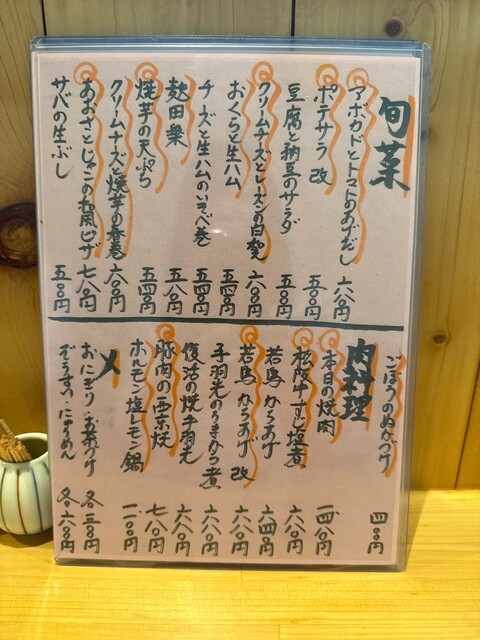 旬菜
アボカドとトマトのあげだし 六八〇円
ポテサラ 改 五〇〇円
豆腐と納豆のサラダ 五八〇円
クリームチーズとレーズンの白和え 六〇〇円
おくらと生ハム 五四〇円
チーズと生ハムのいそべ巻 五四〇円
麩田楽 五八〇円
焼芋の天ぷら 五四〇円
クリームチーズと焼芋の春巻 六〇〇円
あおさとじゃこの和風ピザ 七八〇円
サバの生ぶし 五五〇円
ごぼうのぬかづけ 四〇〇円
肉料理
本日の焼肉
松阪牛すじ塩煮 六八〇円
若鳥 からあげ 六四〇円
若鳥 からあげ 改 六八〇円
手羽先のうまから煮 六八〇円
復活の焼手羽先 六八〇円
豚肉の西京焼 七八〇円
ホルモン塩レモン鍋
〆
おにぎり・お茶づけ 各三八〇円
ぞうすい・にゅうめん 各六八〇円